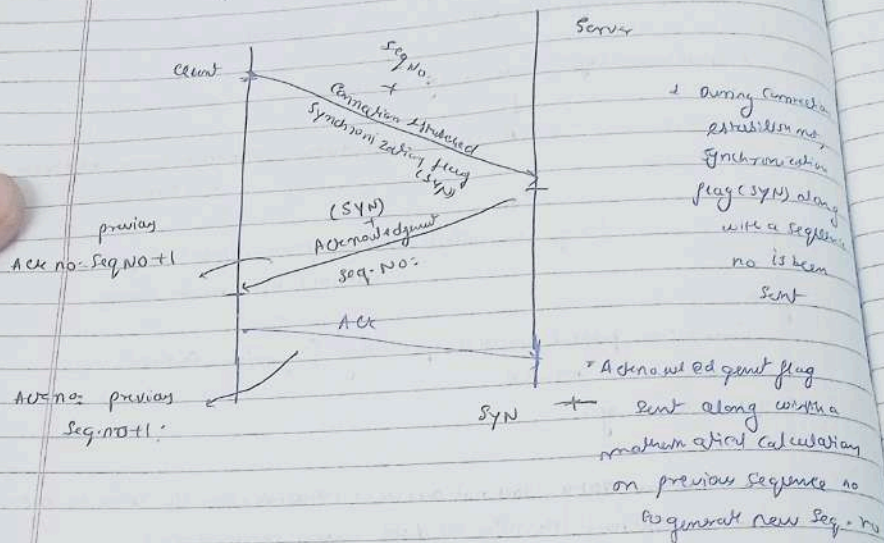 Server
Client
Seq No:
+
Connection established
Synchronization flag
(SYN)
(SYN)
+
Acknowledgment
Seq. No:
previous
Ack no: Seq NO+1
ACK
Ack no: previous
Seq. no+1:
SYN +
During connection
establishment,
synchronization
flag (SYN) along
with a sequence
no is been
sent
Acknowledgment flag
sent along with a
mathematical calculation
on previous sequence no
to generate new Seq. no